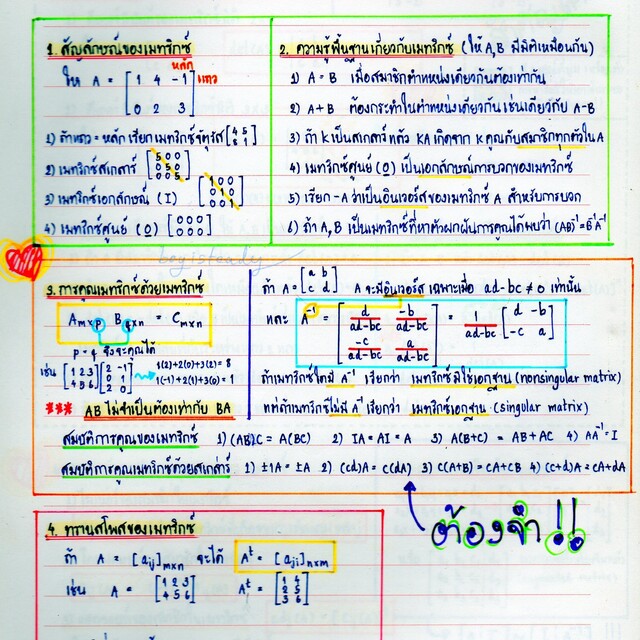 1. สัญลักษณ์ของเมทริกซ์
หลัก
ให้ A = [1 4 -1] แถว
[0 2 3]
1) ถ้าแถว = หลัก เรียก เมทริกซ์จัตุรัส [4 5]
2) เมทริกซ์สเกลาร์ [5 0 0]
[0 5 0]
[0 0 5]
3) เมทริกซ์เอกลักษณ์ (I) [1 0 0]
[0 1 0]
[0 0 1]
4) เมทริกซ์ศูนย์ (0) [0 0 0]
[0 0 0]
2. ความรู้พื้นฐานเกี่ยวกับเมทริกซ์ (ให้ A,B มีมิติเหมือนกัน)
1) A = B เมื่อสมาชิกตำแหน่งเดียวกันต้องเท่ากัน
2) A + B ต้องกระทำในตำแหน่งเดียวกัน เช่นเดียวกับ A-B
3) ถ้า k เป็นสเกลาร์ แล้ว KA เกิดจาก K คูณกับสมาชิกทุกตัวใน A
4) เมทริกซ์ศูนย์ (0) เป็นเอกลักษณ์การบวกของเมทริกซ์
5) เรียก -A ว่าเป็นอินเวอร์สของเมทริกซ์ A สำหรับการบวก
6) ถ้า A,B เป็นเมทริกซ์ที่หาตัวผกผันการคูณได้พบว่า (AB)⁻¹ = B⁻¹A⁻¹
beyisteady
3. การคูณเมทริกซ์ด้วยเมทริกซ์
A m×p B q×n = C m×n
p = q จึงจะคูณได้
เช่น [1 2 3] [2 -1] 1(2)+2(0)+3(2) = 8
[4 5 6] [0 1] 1(-1)+2(1)+3(0) = 1
[2 0]
*** AB ไม่จำเป็นต้องเท่ากับ BA
ถ้า A = [a b] A จะมีอินเวอร์ส เฉพาะเมื่อ ad-bc ≠ 0 เท่านั้น
[c d]
และ A⁻¹ = [d/ad-bc -b/ad-bc] = 1/ad-bc [d -b]
[-c/ad-bc a/ad-bc] [-c a]
ถ้าเมทริกซ์ใดมี A⁻¹ เรียกว่า เมทริกซ์มิใช่เอกฐาน (nonsingular matrix)
แต่ถ้าเมทริกซ์ไม่มี A⁻¹ เรียกว่า เมทริกซ์เอกฐาน (singular matrix)
สมบัติการคูณของเมทริกซ์ 1) (AB)C = A(BC) 2) IA = AI = A 3) A(B+C) = AB + AC 4) AA⁻¹ = I
สมบัติการคูณเมทริกซ์ด้วยสเกล่าร์ 1) ±1A = ±A 2) (cd)A = c(dA) 3) c(A+B) = cA+cB 4) (c+d)A = cA+dA
ต้องจำ !!
4. ทรานสโพสของเมทริกซ์
ถ้า A = [aij] m×n จะได้ Aᵗ = [aji] n×m
เช่น A = [1 2 3] Aᵗ = [1 4]
[4 5 6] [2 5]
[3 6]